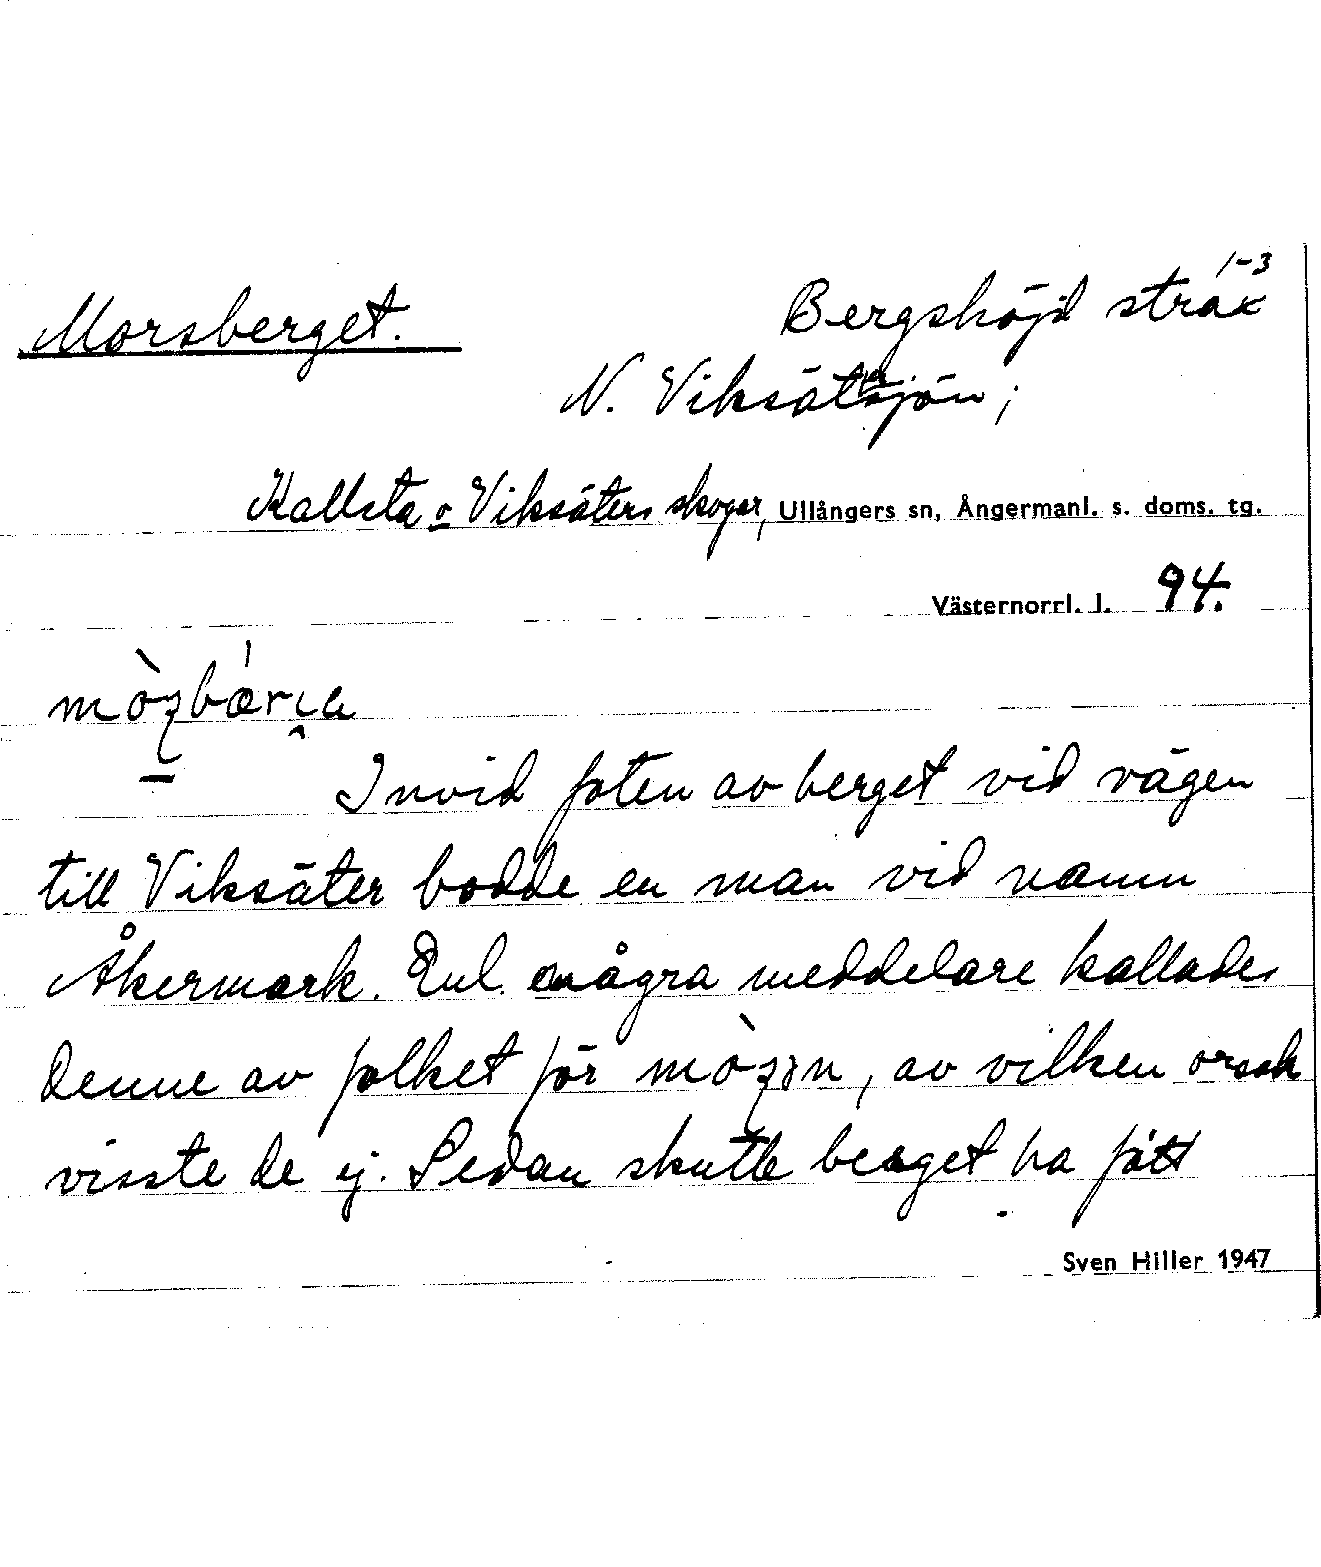 1-3
Morsberget. Bergshöjd strax
N. Viksätersjön;
Kallsta o Viksäters skogar, Ullångers sn, Ångermanl. s. doms. tg.
Västernorrl. l. 94.
Invid foten av berget vid vägen
till Viksäter bodde en man vid namn
Åkermark. Enl. några meddelare kallades
denne av folket för , av vilken orsak
visste de ej. Sedan skulle berget ha fått
Sven Hiller 1947